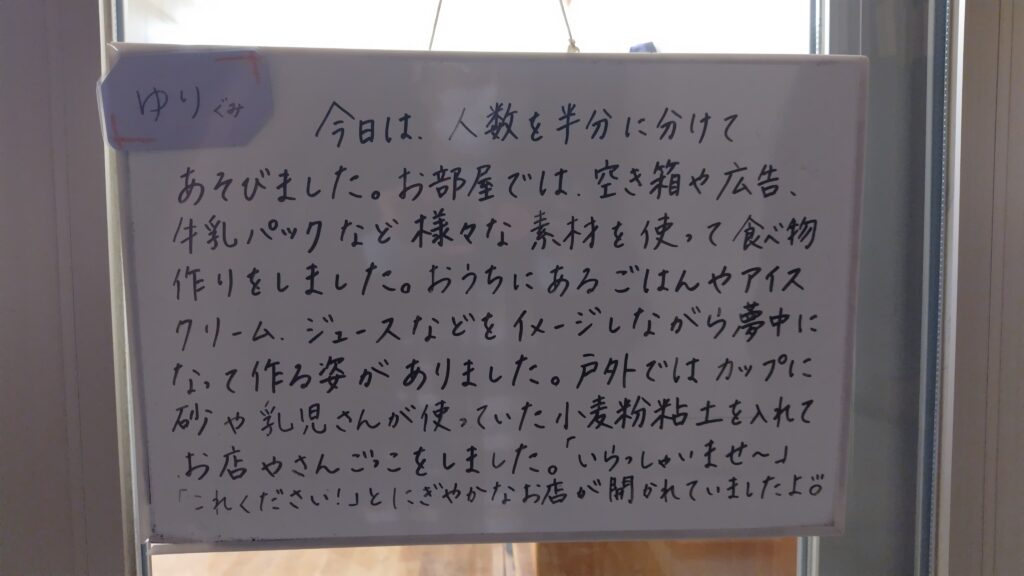 ゆりぐみ
今日は、人数を半分に分けて
あそびました。お部屋では、空き箱や広告、
牛乳パックなど様々な素材を使って食べ物
作りをしました。おうちにあるごはんやアイス
クリーム、ジュースなどをイメージしながら夢中に
なって作る姿がありました。戸外ではカップに
砂や乳児さんが使っていた小麦粉粘土を入れて
お店やさんごっこをしました。「いらっしゃいませ～」
「これください!」とにぎやかなお店が開かれていましたよ。